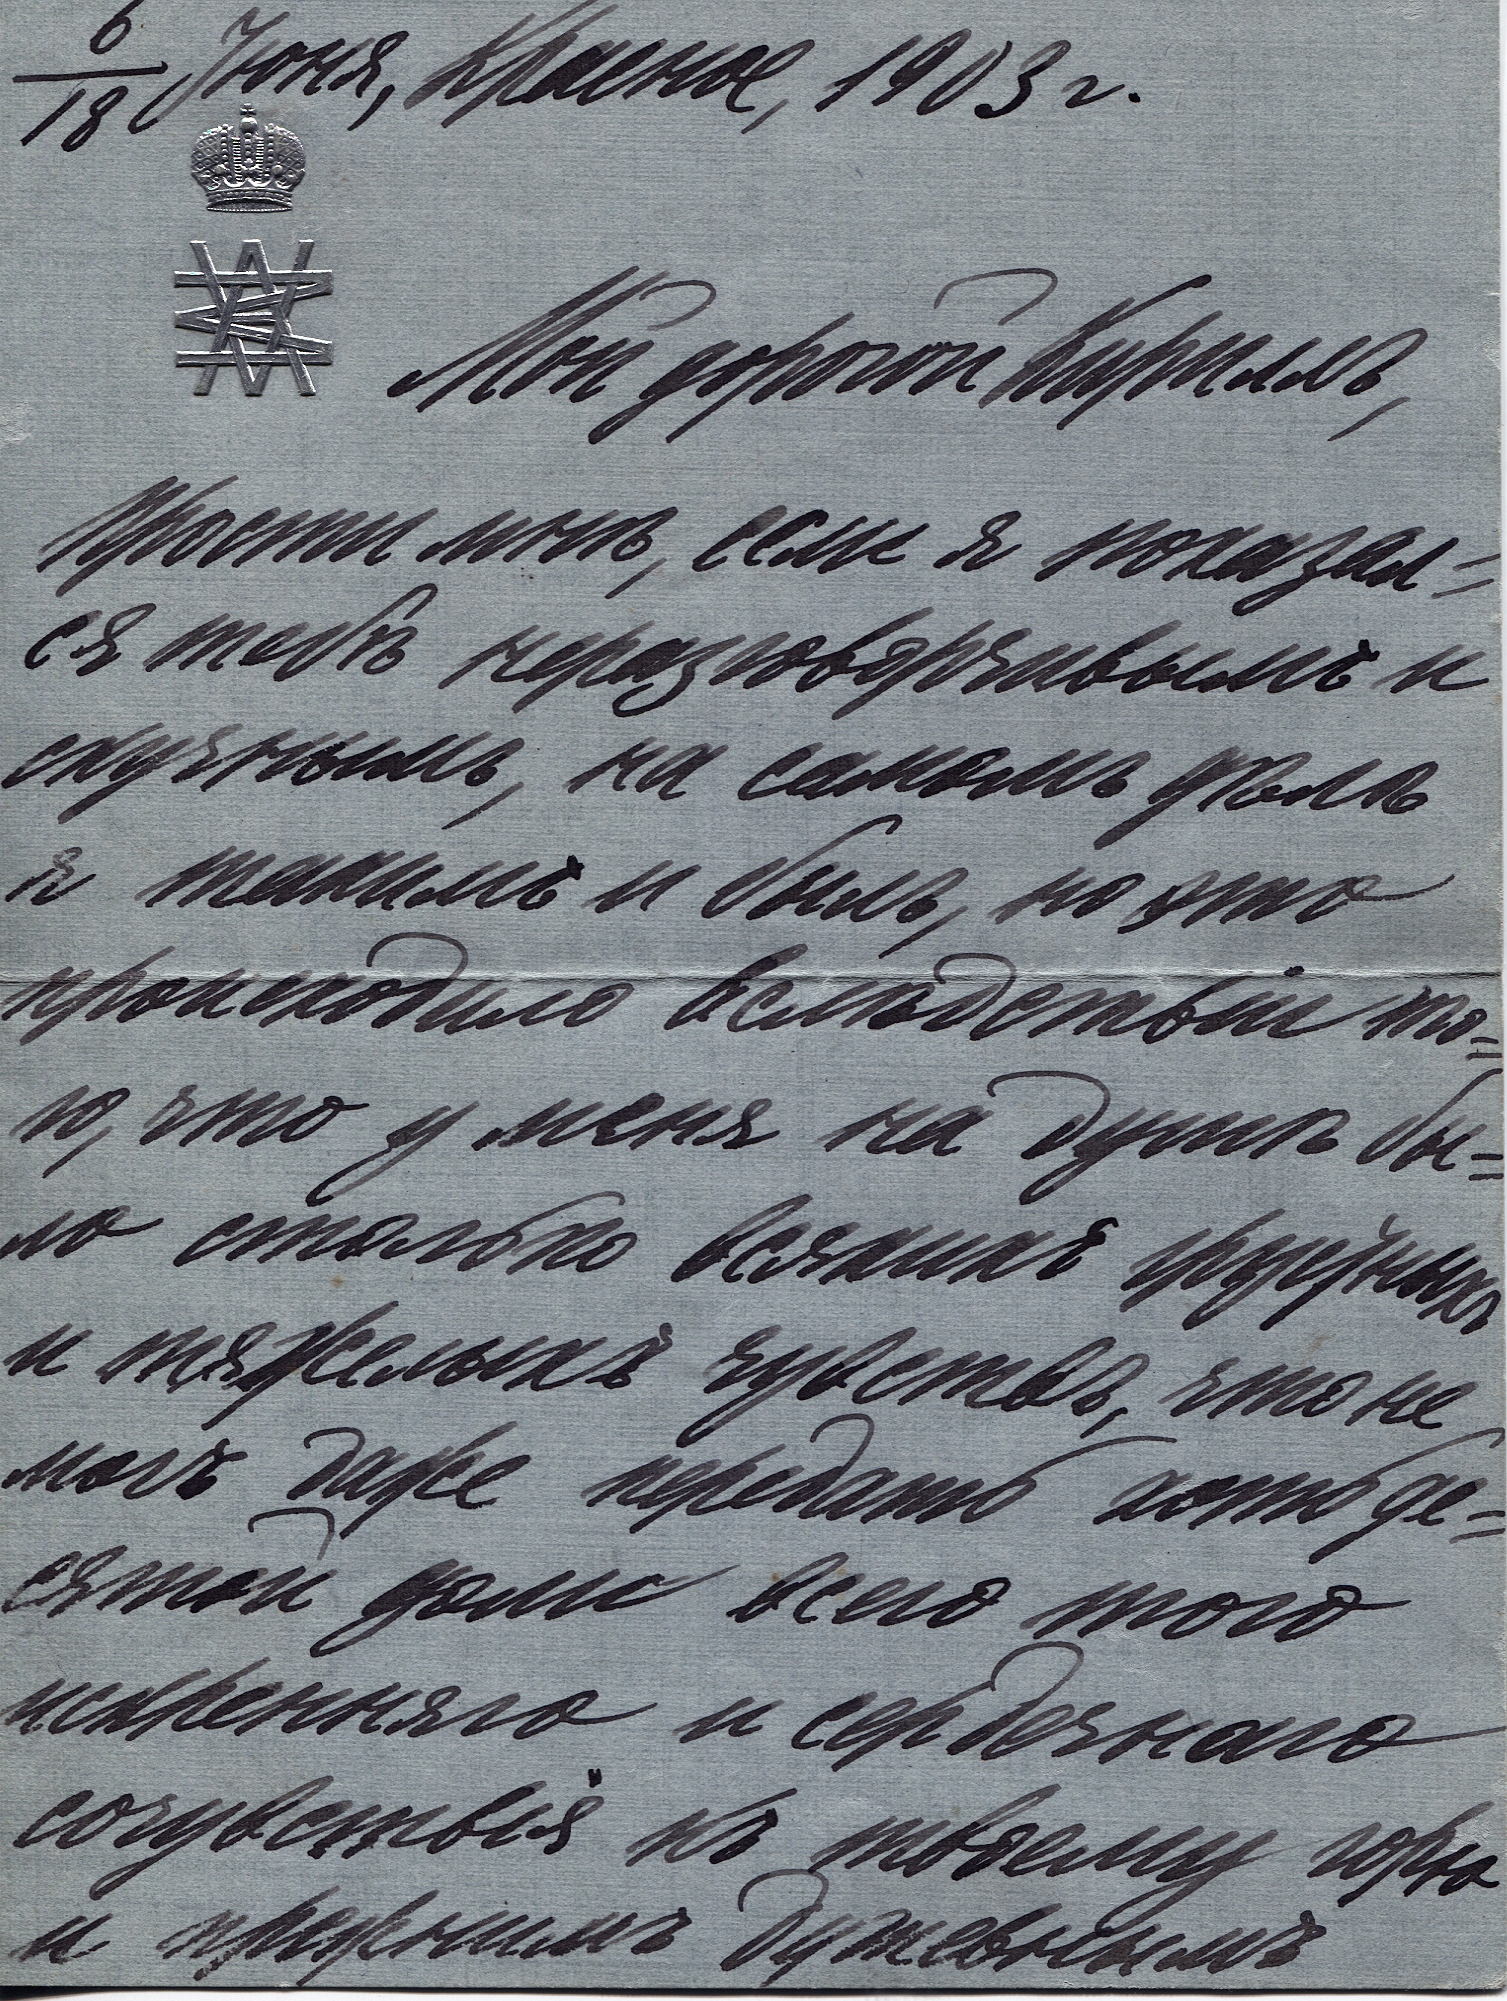 6/18 Июня, Красное, 1903 г.
Мой дорогой Кириллъ,
Прости мнѣ, если я показал=
ся тебѣ неразговорчивымъ и
скучнымъ, на самомъ дѣлѣ
я такимъ и былъ, но это
происходило вслѣдствіи то=
го, что у меня на душѣ бы=
ло столько всякихъ грустныхъ
и тяжелыхъ чувствъ, что не
могъ даже передать хоть де=
сятой доли всего того
искренняго и сердечнаго
сочувствія къ твоему горю
и прежнимъ душевнымъ